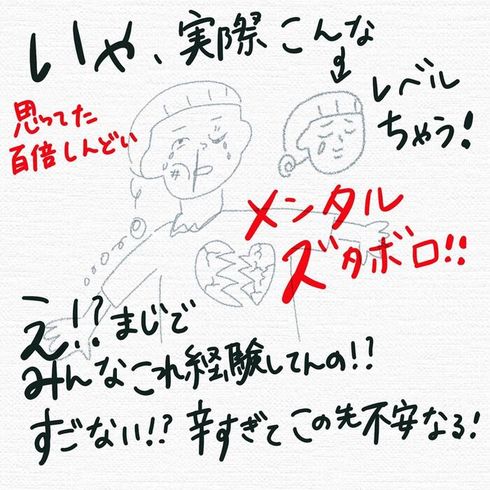 いや、実際こんな
レベル
ちゃう!
思ってた
百倍しんどい
メンタル
ズタボロ!!
え!?まじで
みんなこれ経験してんの!?
すごない!?辛すぎてこの先不安なる!